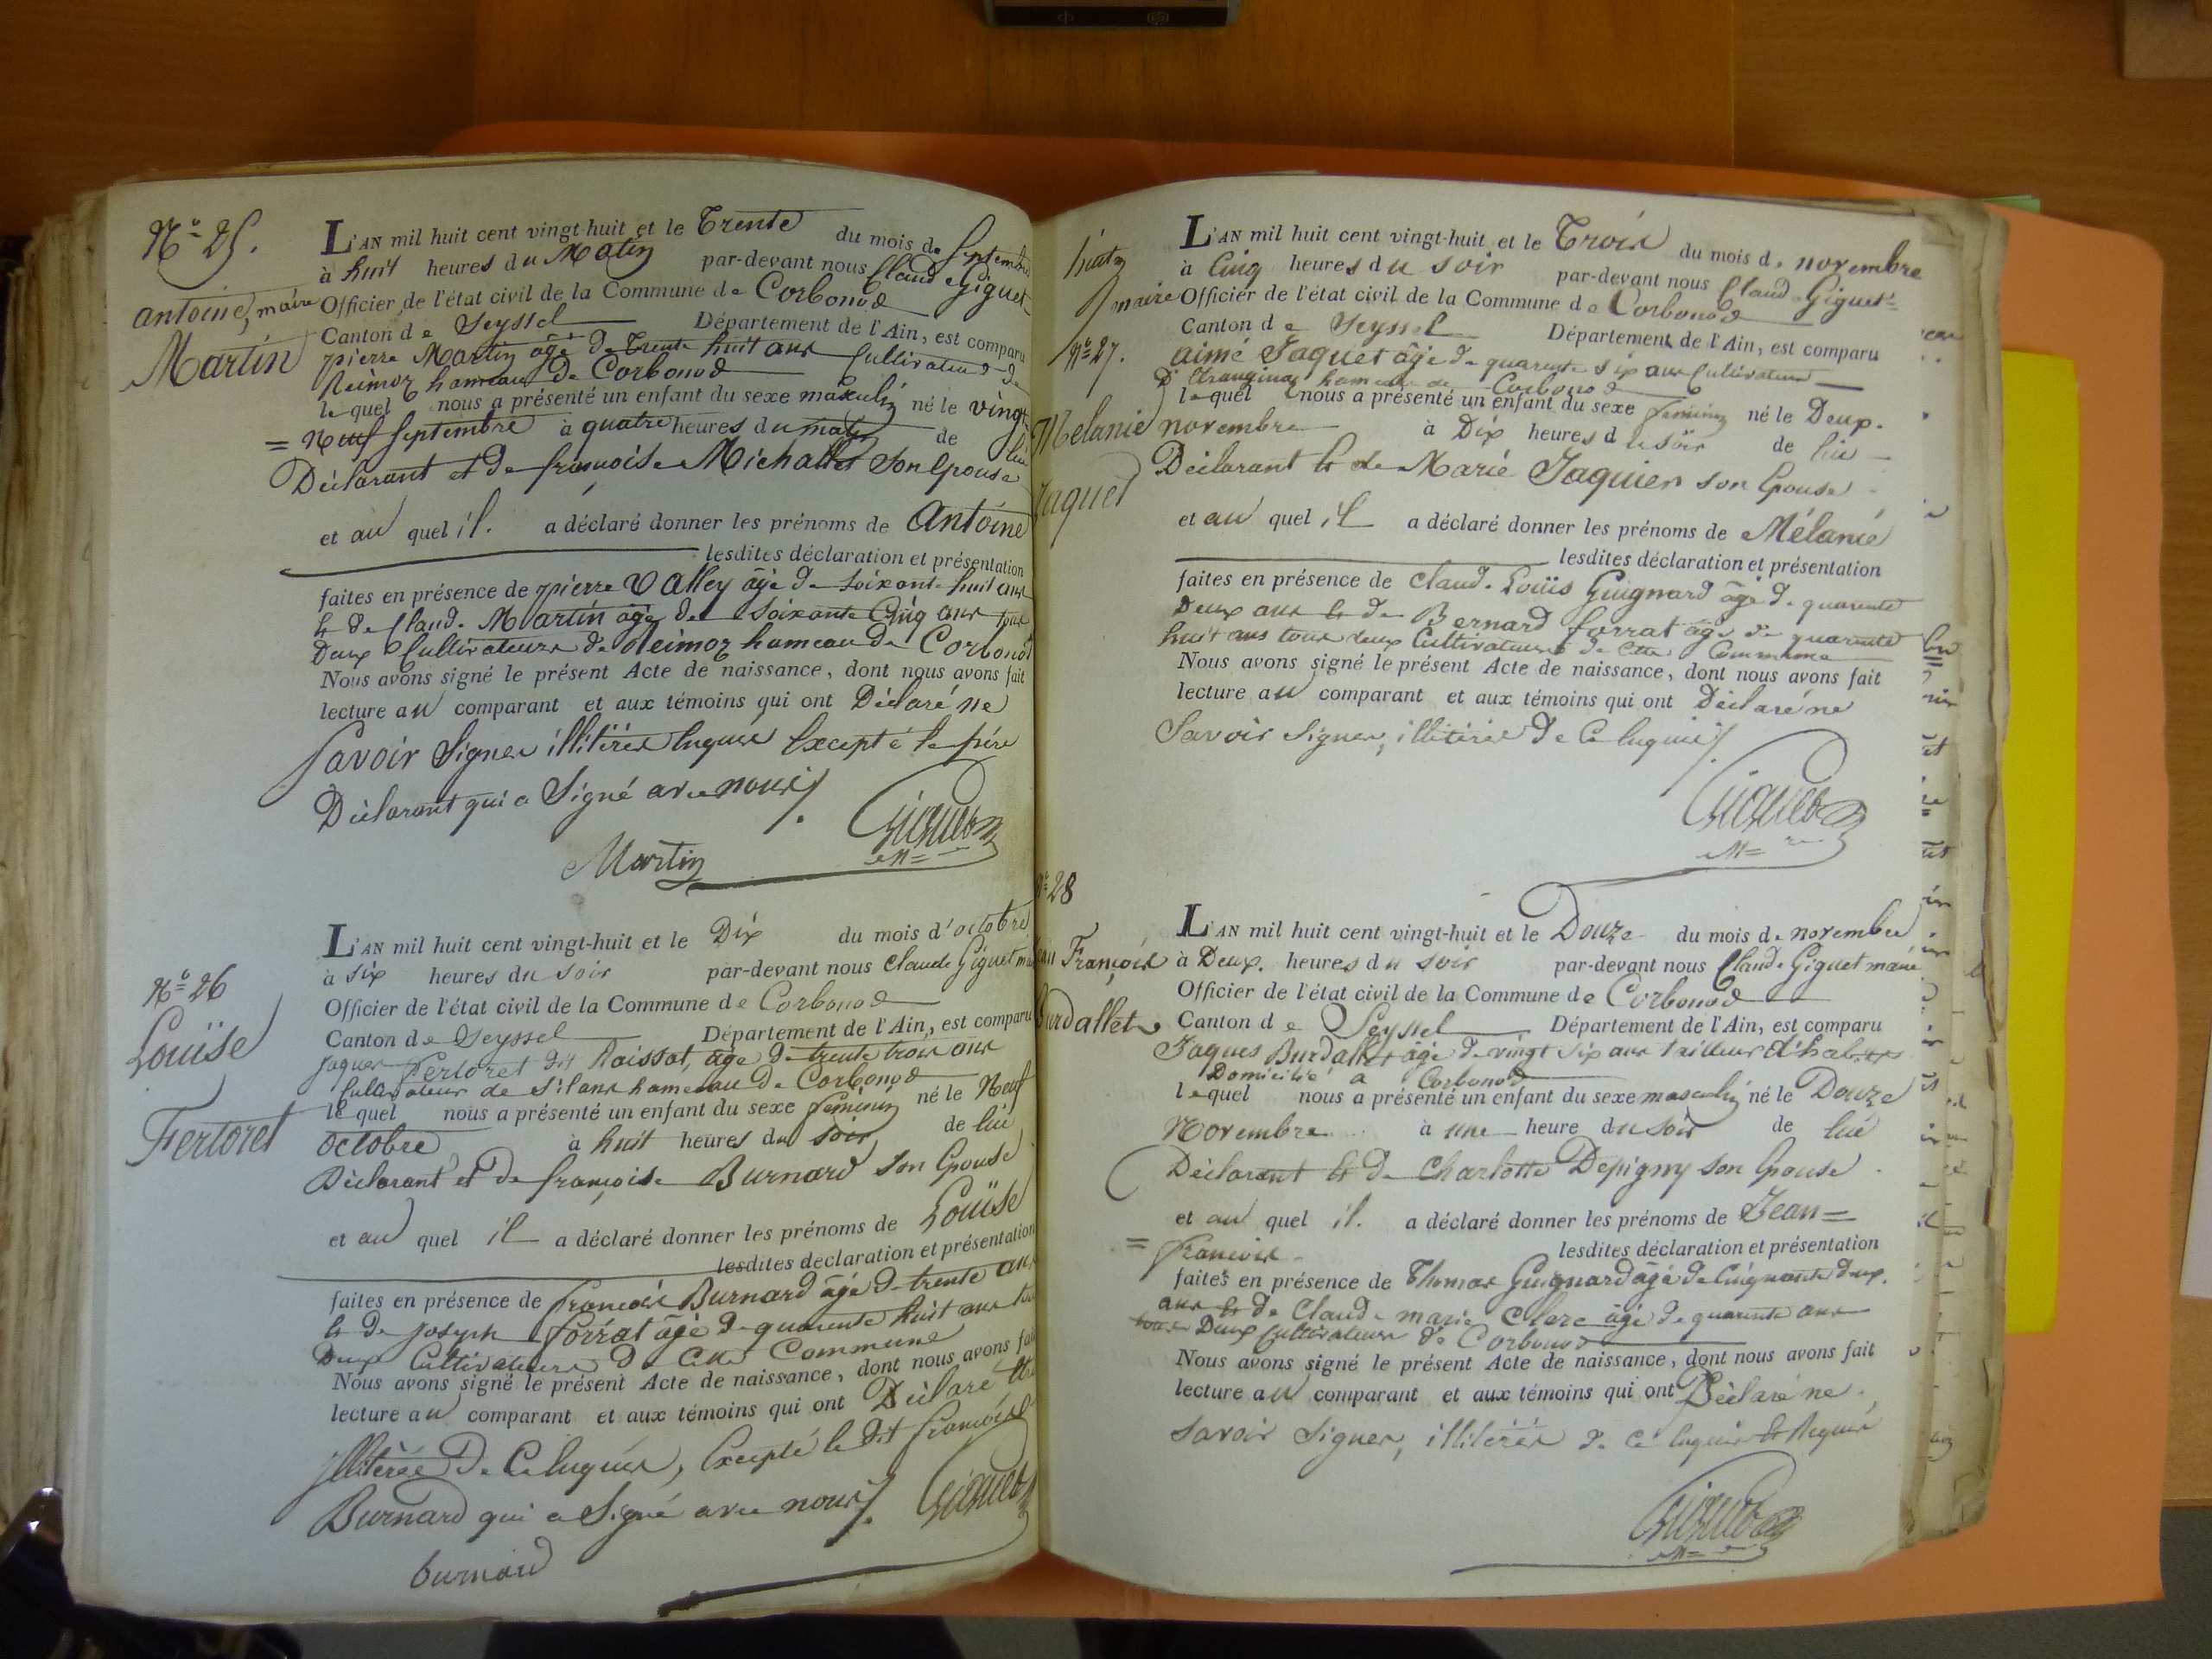 Nº 25.
antoine,
Martin
L'AN mil huit cent vingt-huit et le Trente du mois de Septembre
à huit heures du Matin par-devant nous Claude Giguet
maire Officier de l'état civil de la Commune de Corbonod
Canton de Seyssel Département de l'Ain, est comparu
pierre Martin âgé de Trente huit ans Cultivateur de
Reimoz hameau de Corbonod
lequel nous a présenté un enfant du sexe masculin né le vingt
= Neuf Septembre à quatre heures du matin de lui
Déclarant et de françoise Michallet son Epouse
et au quel il. a déclaré donner les prénoms de Antoine
lesdites déclaration et présentation
faites en présence de pierre Valley âgé de soixante huit ans
& de Claude Martin âgé de soixante Cinq ans tous
Deux Cultivateurs de Reimoz hameau de Corbonod
Nous avons signé le présent Acte de naissance, dont nous avons fait
lecture au comparant et aux témoins qui ont Déclaré ne
Savoir Signer illitérés Enquis Excepté le père
Déclarant qui a Signé avec nous/.
Martin Giguet
Nº 26
Louïse
Fertoret
L'AN mil huit cent vingt-huit et le Dix du mois d'octobre
à six heures du soir par-devant nous Claude Giguet
Officier de l'état civil de la Commune de Corbonod
Canton de Seyssel Département de l'Ain, est comparu
Jaques Fertoret dit Raissat, âgé de trente trois ans
Cultivateur de Silans hameau de Corbonod
le quel nous a présenté un enfant du sexe féminin né le Neuf
octobre à huit heures du soir de lui
Déclarant et de françoise Burnard son Epouse
et au quel il a déclaré donner les prénoms de Louïse
lesdites déclaration et présentation
faites en présence de françois Burnard âgé de trente ans
& de Joseph forrat âgé de quarente huit ans
Deux Cultivateurs de Cette Commune
Nous avons signé le présent Acte de naissance, dont nous avons
lecture au comparant et aux témoins qui ont Déclaré
Illitérés De Ce Enquis, Excepté le dit françois
Burnard qui a Signé avec nous/. Giguet
burnard
nº 27.
Melanie
Jaquet
L'AN mil huit cent vingt-huit et le Trois du mois de novembre
à Cinq heures du soir par-devant nous Claude Giguet
maire Officier de l'état civil de la Commune de Corbonod
Canton de Seyssel Département de l'Ain, est comparu
aimé Jaquet âgé de quarente six ans Cultivateur
D'Etranginaz hameau de Corbonod
lequel nous a présenté un enfant du sexe feminin né le Deux.
novembre à Dix heures du soir de lui
Déclarant & de Marie Jaquier son Epouse
et au quel il a déclaré donner les prénoms de Mélanie
lesdites déclaration et présentation
faites en présence de Claude Louïs Guignard âgé de quarente
Deux ans & de Bernard forrat âgé de quarente
huit ans tous deux Cultivateurs de Cette Commune
Nous avons signé le présent Acte de naissance, dont nous avons fait
lecture au comparant et aux témoins qui ont Déclaré ne
Savoir Signer, illitérés de Ce Enquis/.
Giguet
nº 28
Jean François
Burdallet
L'AN mil huit cent vingt-huit et le Douze du mois de novembre
à Deux. heures du soir par-devant nous Claude Giguet maire
Officier de l'état civil de la Commune de Corbonod
Canton de Seyssel Département de l'Ain, est comparu
Jaques Burdallet âgé de vingt six ans tailleur d'habits
Domicilié a Corbonod
lequel nous a présenté un enfant du sexe masculin né le Douze
Novembre à une heure du soir de lui
Déclarant & de Charlotte Depigny son Epouse
et au quel il. a déclaré donner les prénoms de Jean=
= françois lesdites déclaration et présentation
faites en présence de Thomas Guignard âgé de Cinquante deux.
ans & de Claude marie Clerc âgé de quarente ans
tous Deux Cultivateurs de Corbonod
Nous avons signé le présent Acte de naissance, dont nous avons fait
lecture au comparant et aux témoins qui ont Déclaré ne
savoir signer, illitérés de Ce Enquis & Requis
Giguet